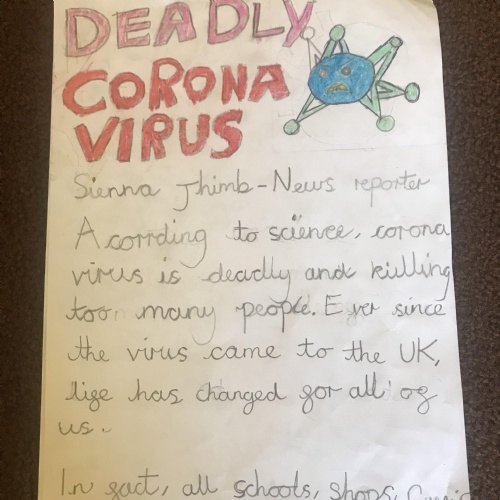 DEADLY
CORONA
VIRUS
Sienna Jhimb-News reporter
Acorrding to science, corona
virus is deadly and killing
too many people. Ever since
the virus came to the UK,
life has changed for all of
us.
In fact, all schools, shops,